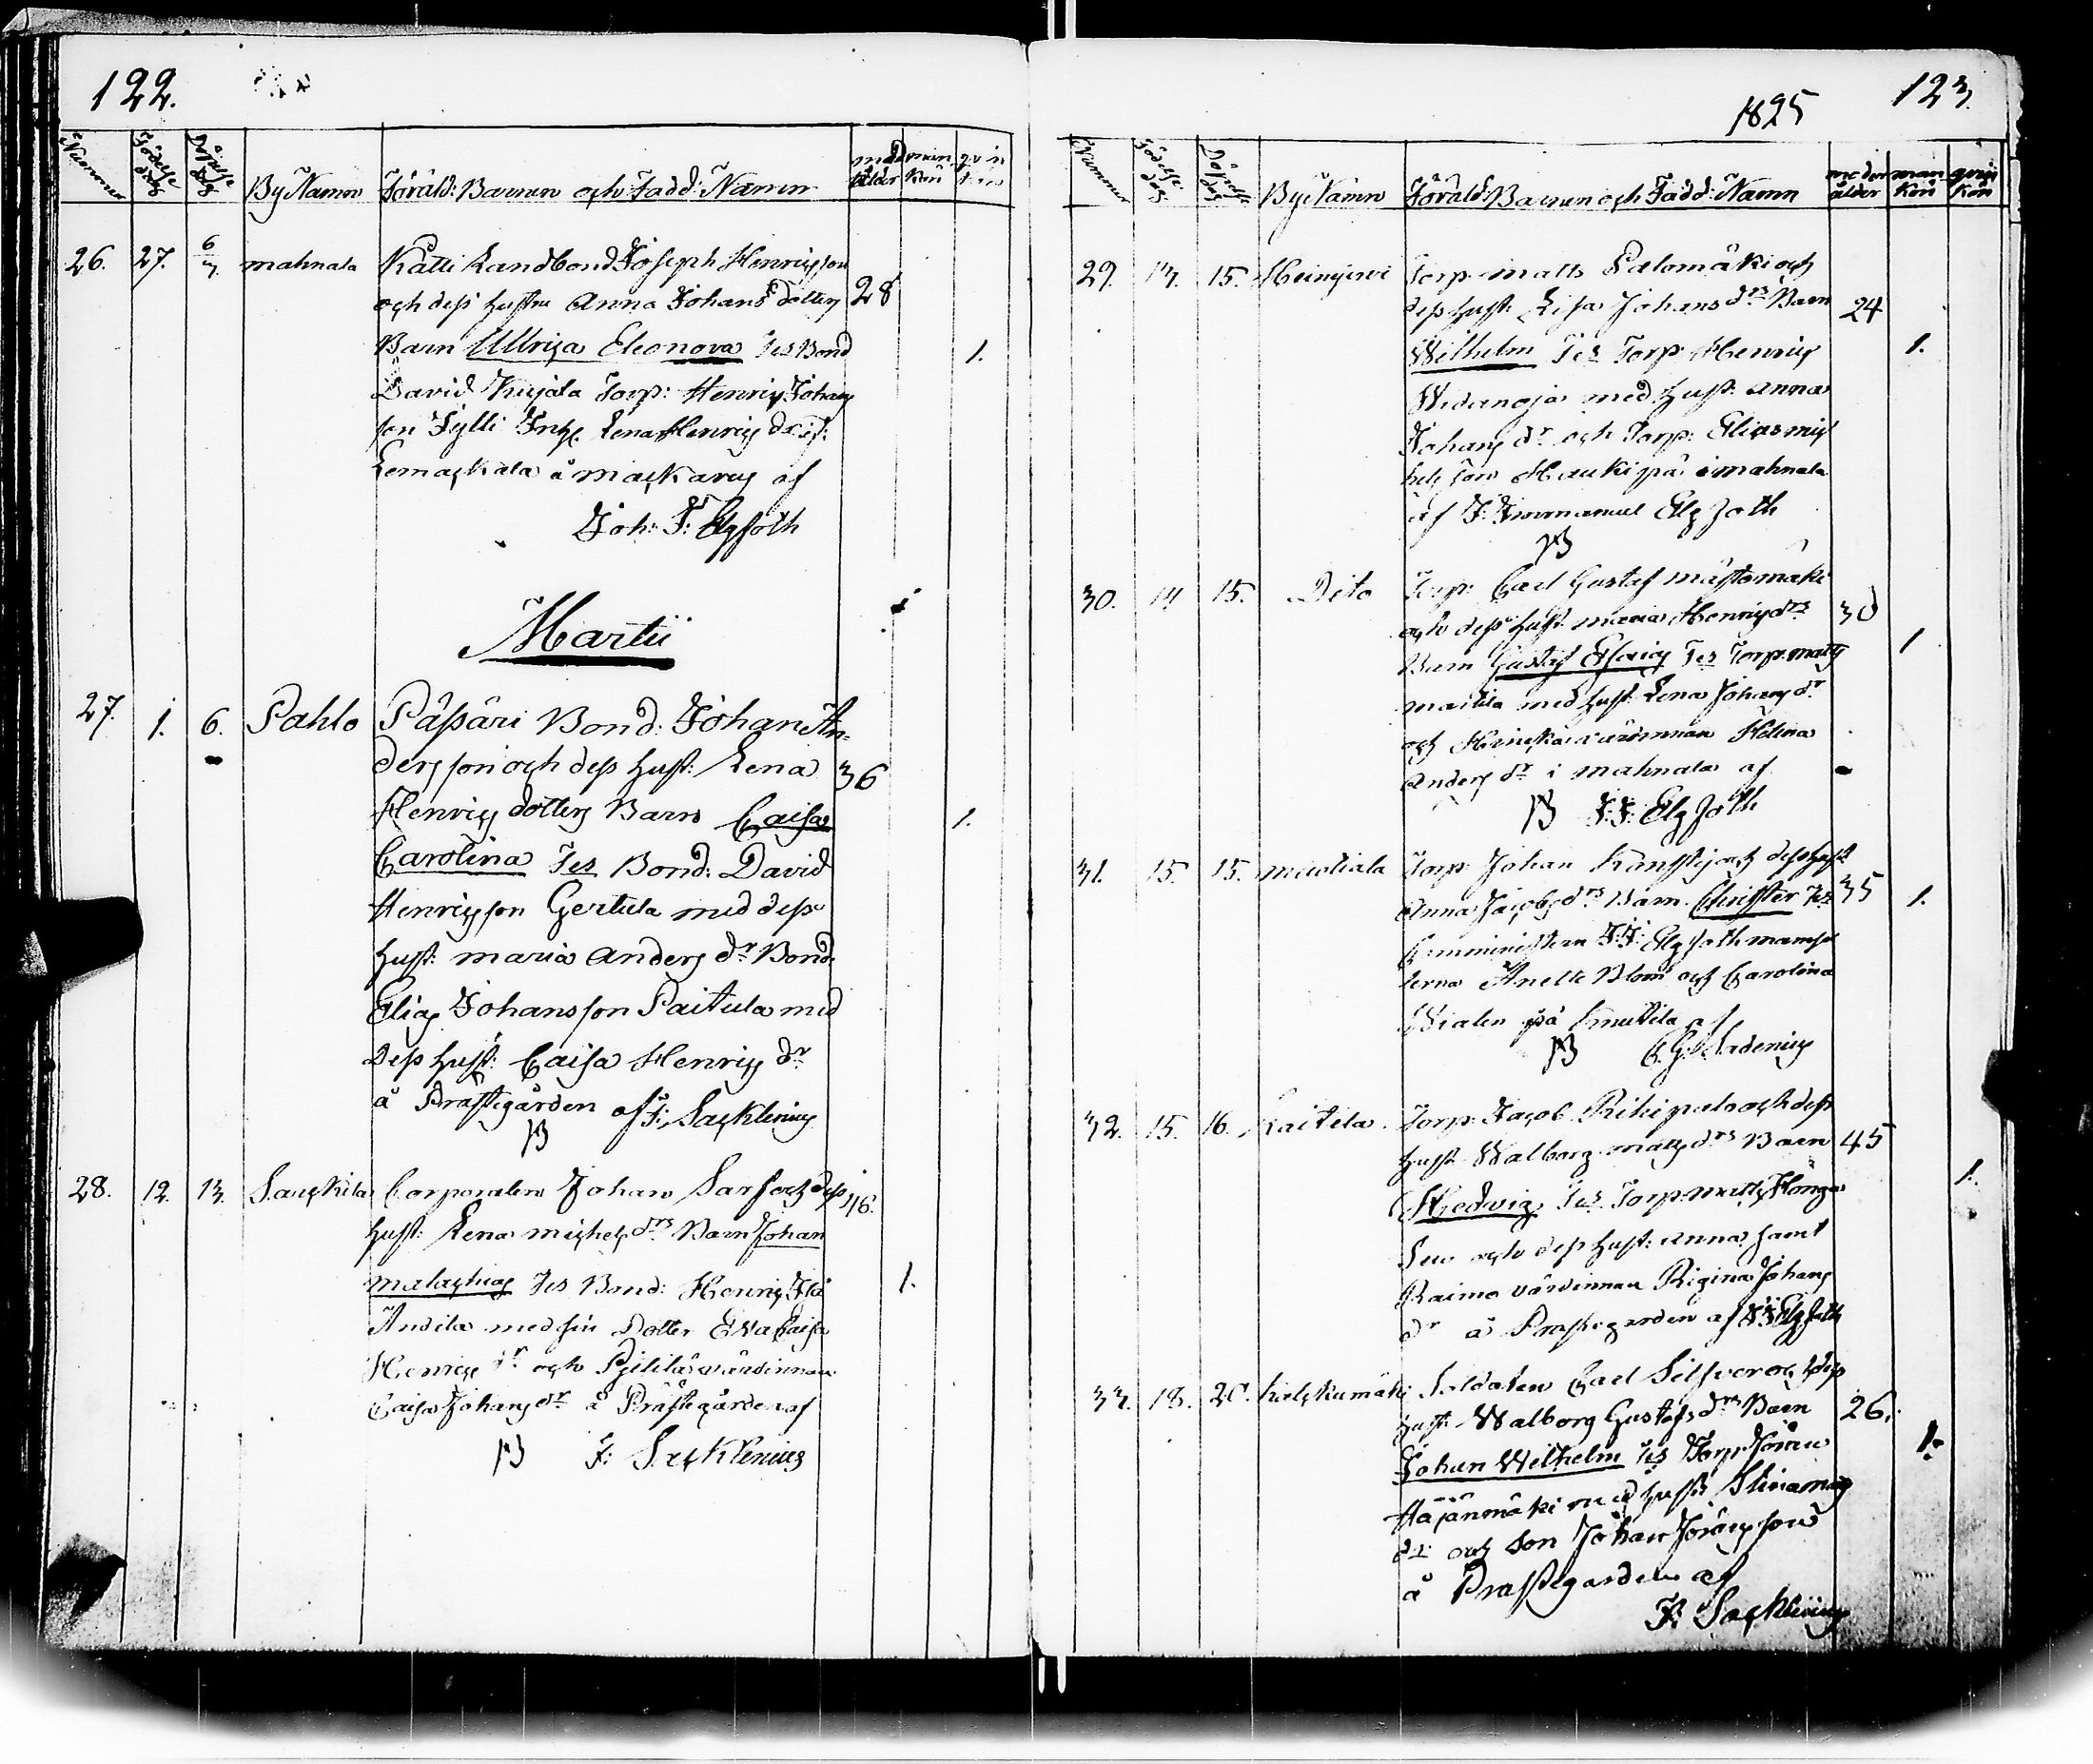 122.
Nummer Födelse dag Döpelse dag By Namn Föräld: Barnen och Fadd: Namn mod ålder man kön qvin kön
26. 27. 6/3 mahnala Kätti Landbond Joseph Henricsson
och dess hustru Anna Johans dotters 28
Barn Ullrica Eleonora Tes Bond 1.
David Kujala Torp: Henric Johans
son Jylli Enk. Lena Henrics dr if:
Lemackala å mackarus af
Joh: F: Elgfoth
Martii
27. 1. 6. Pahlo Påssåri Bond: Johan An-
dersson och dess hust: Lena 36
Henrics dotters Barn Caisa 1.
Carolina Tes Bond: David
Henricsson Gertula med dess
hust: maria Anders dr Bond.
Elias Johansson Paitula med
dess hust: Caisa Henrics dr
å Prästegården af F: Sacklenius
28. 12. 13. Sauckila Corporalen Johan Sarf och dess 46.
hust: Lena michels drs Barn Johan
malachias Tes Bond: Henric Iso 1.
Andila med sin Dotter Eva Caisa
Henrics dr och Pjililä värdinnan
Caisa Johans dr å Prästegården af
F: Sacklenius
1825 123.
Nummer Födelse dag Döpelse dag By Namn Föräld: Barnen och Fadd: Namn moder ålder man kön qvin kön
29. 13. 15. Heinijerwi Torp. matts Palomäki och
dess hust: Lisa Johans drs Barn 24
Wilhelm Tes Torp Henric 1.
Widanoja med hust: anna
Johans dr och Torp: Elias mic
hels son Haukipä i mahnala
af J: Immanuel Elgfoth
30. 14 15. Dito Torp: Carl Gustaf mästomäki
och dess hust: maria Henricsdrs 30
Barn Gustaf Esaias Tes Torp. matts 1
mattila med hust: Lena Johans dr
och värdinnan Helena
Anders dr i mahnala af
J: J: Elgfoth
31. 15. 15. mieoliala Torp: Johan Kimstij och dess hust
Anna Jacobs drs Barn. Christer Tes 35 1.
Comministern J: J: Elgfoth mamsel
lerna Anette Blom och Carolina
Wialen på Knutila af
C. G. Ladenius
32. 15. 16. Laitila. Torp. Jacob Rikipelto och dess
hust Walborg matts drs Barn 45
Hedwig Tes Torp. matts Honga 1.
Suo och dess hust: anna samt
Raimo värdinnan Rigina Johans
dr å Prästegården af J: J: Elgfoth
33. 18. 20. kalckumäki Soldaten Carl Silfver och dess
hust: Walborg Gustafs drs Barn 26.
Johan Wilhelm Tes Torp. Jöran 1.
Häjänmäki med hust: Stina mats
dr och son Johan Jöransson
å Prästegården af
F: Sacklenius